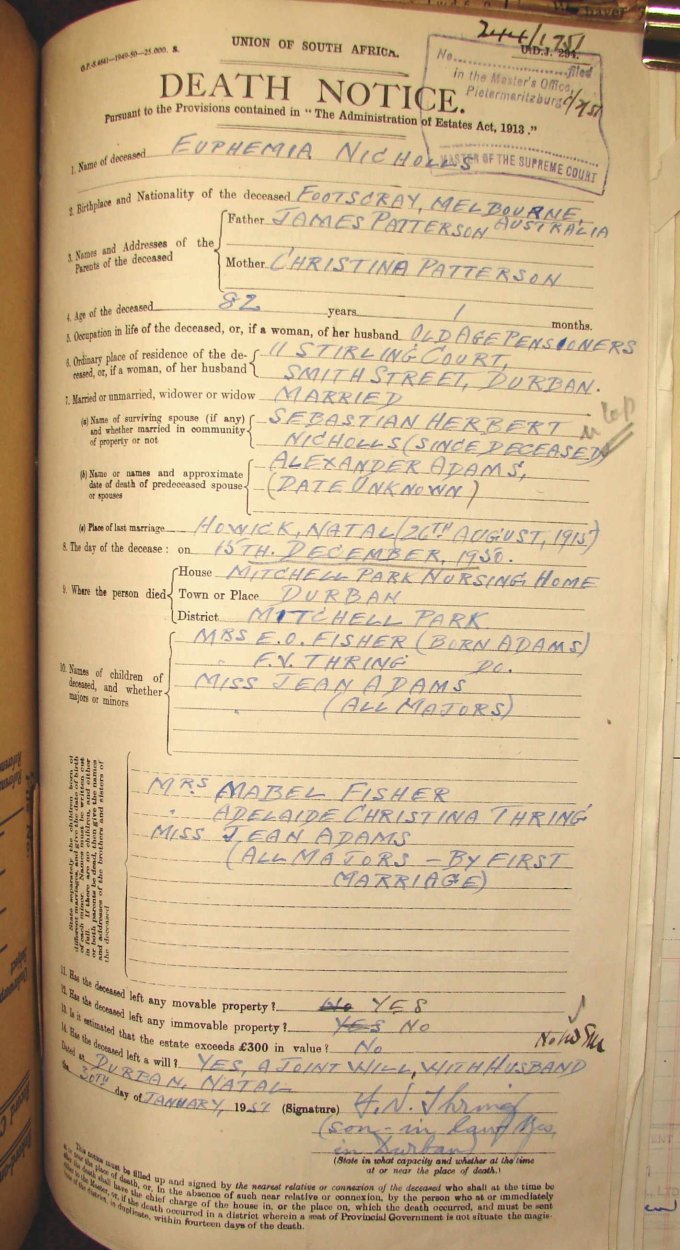 244/1751
UNION OF SOUTH AFRICA.
U.D.J. 294.
G.P.-S.4641—1949-50—25,000. S.
No. filed
in the Master's Office,
Pietermaritzburg
MASTER OF THE SUPREME COURT
DEATH NOTICE.
Pursuant to the Provisions contained in "The Administration of Estates Act, 1913."
1. Name of deceased EUPHEMIA NICHOLLS
2. Birthplace and Nationality of the deceased FOOTSCRAY, MELBOURNE,
AUSTRALIA
3. Names and Addresses of the Parents of the deceased
Father JAMES PATTERSON
Mother CHRISTINA PATTERSON
4. Age of the deceased 82 years 1 months.
5. Occupation in life of the deceased, or, if a woman, of her husband OLD AGE PENSIONERS
6. Ordinary place of residence of the de- 11 STIRLING COURT,
ceased, or, if a woman, of her husband SMITH STREET, DURBAN.
7. Married or unmarried, widower or widow MARRIED
(a) Name of surviving spouse (if any) SEBASTIAN HERBERT
and whether married in community NICHOLLS (SINCE DECEASED)
of property or not
in cop
(b) Name or names and approximate ALEXANDER ADAMS,
date of death of predeceased spouse (DATE UNKNOWN)
or spouses
(c) Place of last marriage HOWICK, NATAL (26TH AUGUST, 1915)
8. The day of the decease: on 15TH. DECEMBER, 1950.
9. Where the person died
House MITCHELL PARK NURSING HOME
Town or Place DURBAN
District MITCHELL PARK
10. Names of children of deceased, and whether majors or minors
MRS E.O. FISHER (BORN ADAMS)
" F.V. THRING DO.
MISS JEAN ADAMS
(ALL MAJORS)
State separately the children born of
different marriages, and give the date of birth
of each minor. Names must be written out
in full. If there are no children, and either
or both parents be dead, then give the names
and addresses of the brothers and sisters of
the deceased
MRS MABEL FISHER
" ADELAIDE CHRISTINA THRING
MISS JEAN ADAMS
(ALL MAJORS – BY FIRST
MARRIAGE)
11. Has the deceased left any movable property? No YES
12. Has the deceased left any immovable property? YES NO
13. Is it estimated that the estate exceeds £300 in value? NO
14. Has the deceased left a will? YES, A JOINT WILL, WITH HUSBAND
Dated at DURBAN, NATAL
the 30TH day of JANUARY, 1951 (Signature) H. N. Thring
(son-in-law) Yes,
in Durban
(State in what capacity and whether at the time
at or near the place of death.)
This notice must be filled up and signed by the nearest relative or connexion of the deceased who shall at the time be
at or near the place of death, or, in the absence of such near relative or connexion, by the person who at or immediately
after the death shall have the chief charge of the house in, or the place on, which the death occurred, and must be sent
either to the Master, or, if the death occurred in a district wherein a seat of Provincial Government is not situate the magis-
trate of the district, in duplicate, within fourteen days of the death.